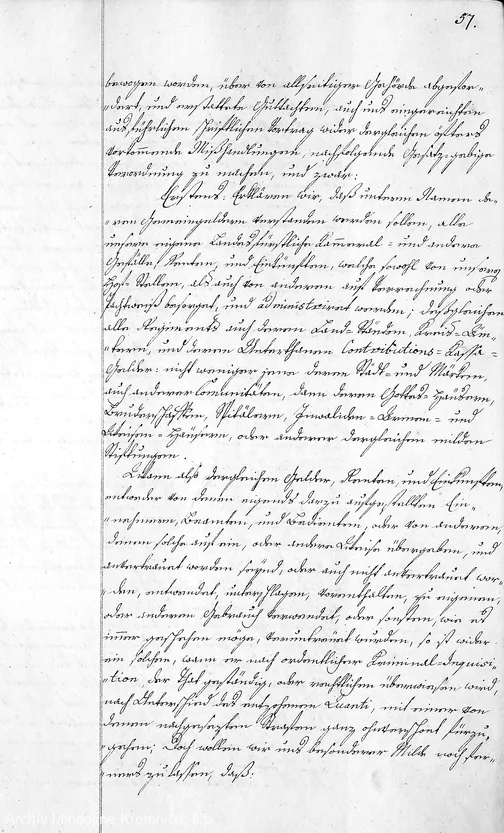 57.
bewogen worden, über von allseitiger Gehörde abgefor-
dert, und erstattete Guttachten, auch uns eingereichten
ausführlichen schriftlichen Vortrag wider dergleichen öfters
vorkommende Mißhandlungen, nachfolgende Gesätz-gebige
Verordnung zu machen, und zwar:
Erstens: Erklären wir, daß unterm Namen de-
ren Gemeingeldern verstanden werden sollen, alle
unsere eigene Landesfürstliche Kammeral- und andere
Gefälle, Renten, und Einkünften, welche sowohl von unseren
Hof-Stellen, als auch von anderen auf Verrechnung oder
Pachtweiß besorget, und administriret werden; deßgleichen
alle Regiments auch deren Land-Ständen, Kreis-Äm-
tern, und deren Unterthanen Contributions-Kassa-
Gelder: nicht weniger jene deren Städt- und Märkten,
auch anderer Comunitäten, dann deren Gottes-Häusern,
Bruderschaften, Spitälern, Invaliden-Armen- und
Waisen-Häusern, oder anderer dergleichen milden
Stiftungen.
Wann also dergleichen Gelder, Renten, und Einkünften,
entweder von denen eigends darzu aufgestellten Ein-
nehmern, Beamten, und Bedienten, oder von anderen,
denen solche auf ein, oder andere Weise übergeben, und
anvertrauet worden seynd, oder auch nicht anvertrauet wor-
den, entwendet, unterschlagen, vorenthalten, zu eigenen,
oder anderen Gebrauch verwendet, oder sonsten, wie es
immer geschehen möge, veruntreuet wurden, so ist wider
ein solchen, wann er nach ordentlicher Kriminal-Inquisi-
tion, der That geständig, oder rechtlichen überwiesen wird
nach Unterschied des entzohenen Quanti, mit einer von
denen nachgesetzten Straffen ganz ohnverschont fürzu-
gehen; Doch wollen wir aus besonderer Milde noch fer-
ners zulassen, daß:
Archív Mincovne Kremnica, š.p.